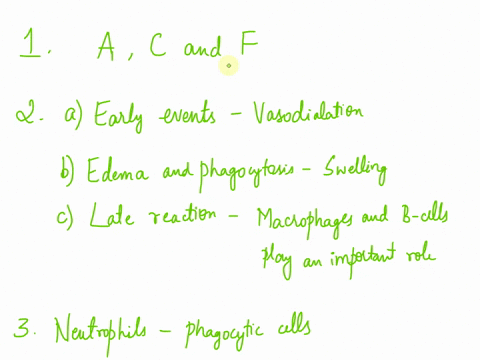 1. A, C and F
2. a) Early events - Vasodialation
b) Edema and phagocytosis - Swelling
c) Late reaction - Macrophages and B-cells
play an important role
3. Neutrophils - phagocytic cells